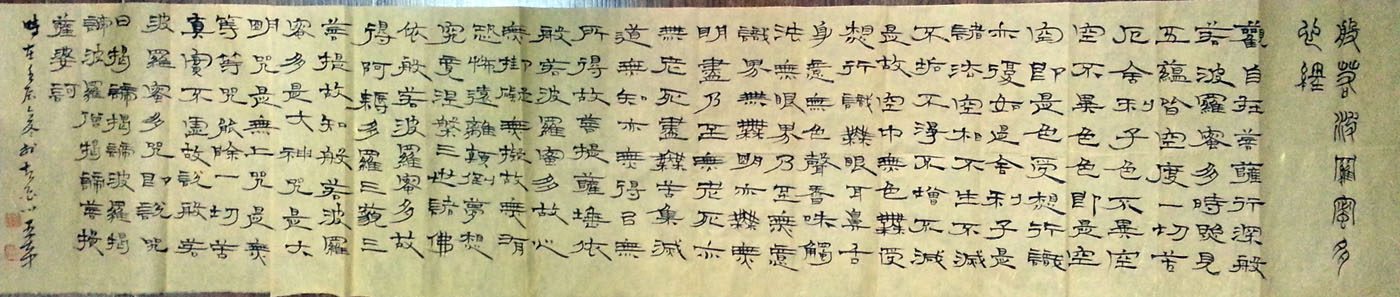 般若波羅蜜多
心經
觀自在菩薩行深般
若波羅蜜多時照見
五蘊皆空度一切苦
厄舍利子色不異空
空不異色色即是空
空即是色受想行識
亦復如是舍利子是
諸法空相不生不滅
不垢不淨不增不減
是故空中無色無受
想行識無眼耳鼻舌
身意無色聲香味觸
法無眼界乃至無意
識界無無明亦無無
明盡乃至無老死亦
無老死盡無苦集滅
道無知亦無得以無
所得故菩提薩埵依
般若波羅蜜多故心
無掛礙無礙故無有
恐怖遠離顛倒夢想
究竟涅槃三世諸佛
依般若波羅蜜多故
得阿耨多羅三藐三
菩提故知般若波羅
蜜多是大神咒是大
明咒是無上咒是無
等等咒能除一切苦
真實不虛故說般若
波羅蜜多咒即說咒
曰揭諦揭諦波羅揭
諦波羅僧揭諦菩提
薩婆訶
時在